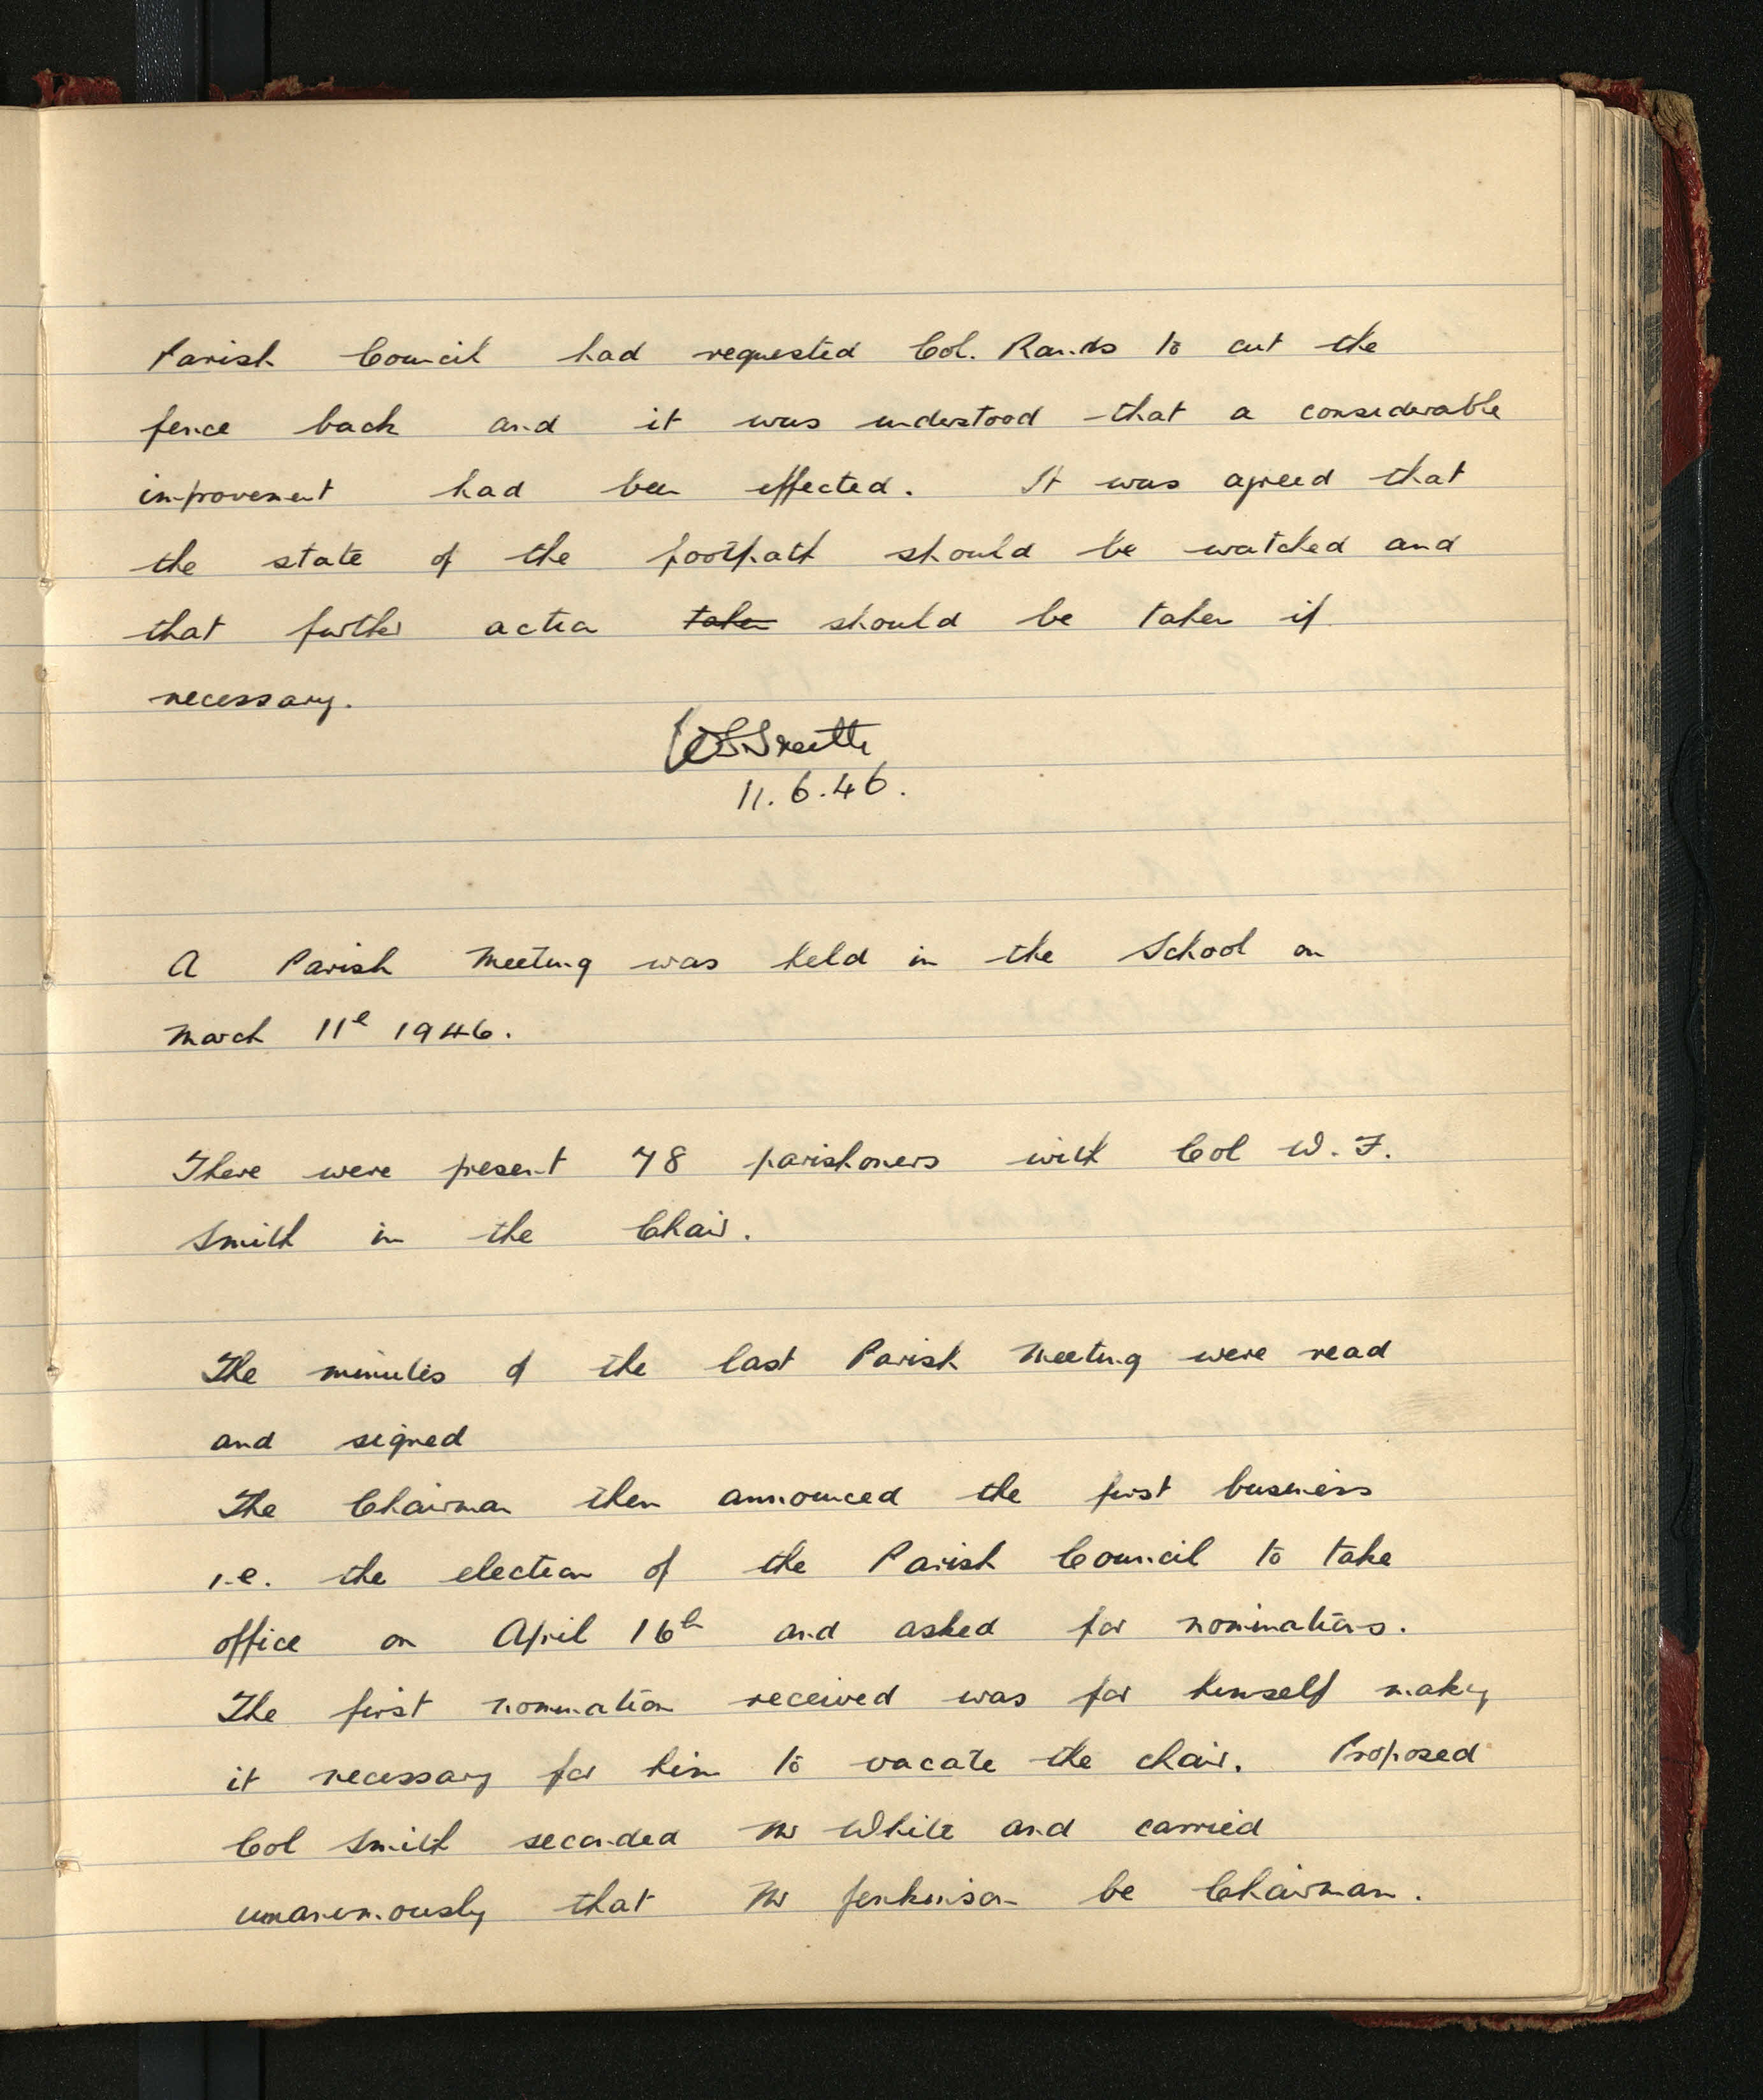 Parish Council had requested Col. Rands to cut the
fence back and it was understood that a considerable
improvement had been effected. It was agreed that
the state of the footpath should be watched and
that further action taken should be taken if
necessary.
11.6.46.
A Parish Meeting was held in the School on
March 11th 1946.
There were present 78 parishoners with Col W. F.
Smith in the Chair.
The minutes of the last Parish Meeting were read
and signed
The Chairman then announced the first business
i.e. the election of the Parish Council to take
office on April 16th and asked for nominations.
The first nomination received was for himself making
it necessary for him to vacate the chair. Proposed
Col Smith seconded Mr White and carried
unanimously that Mr Jenkinson be Chairman.